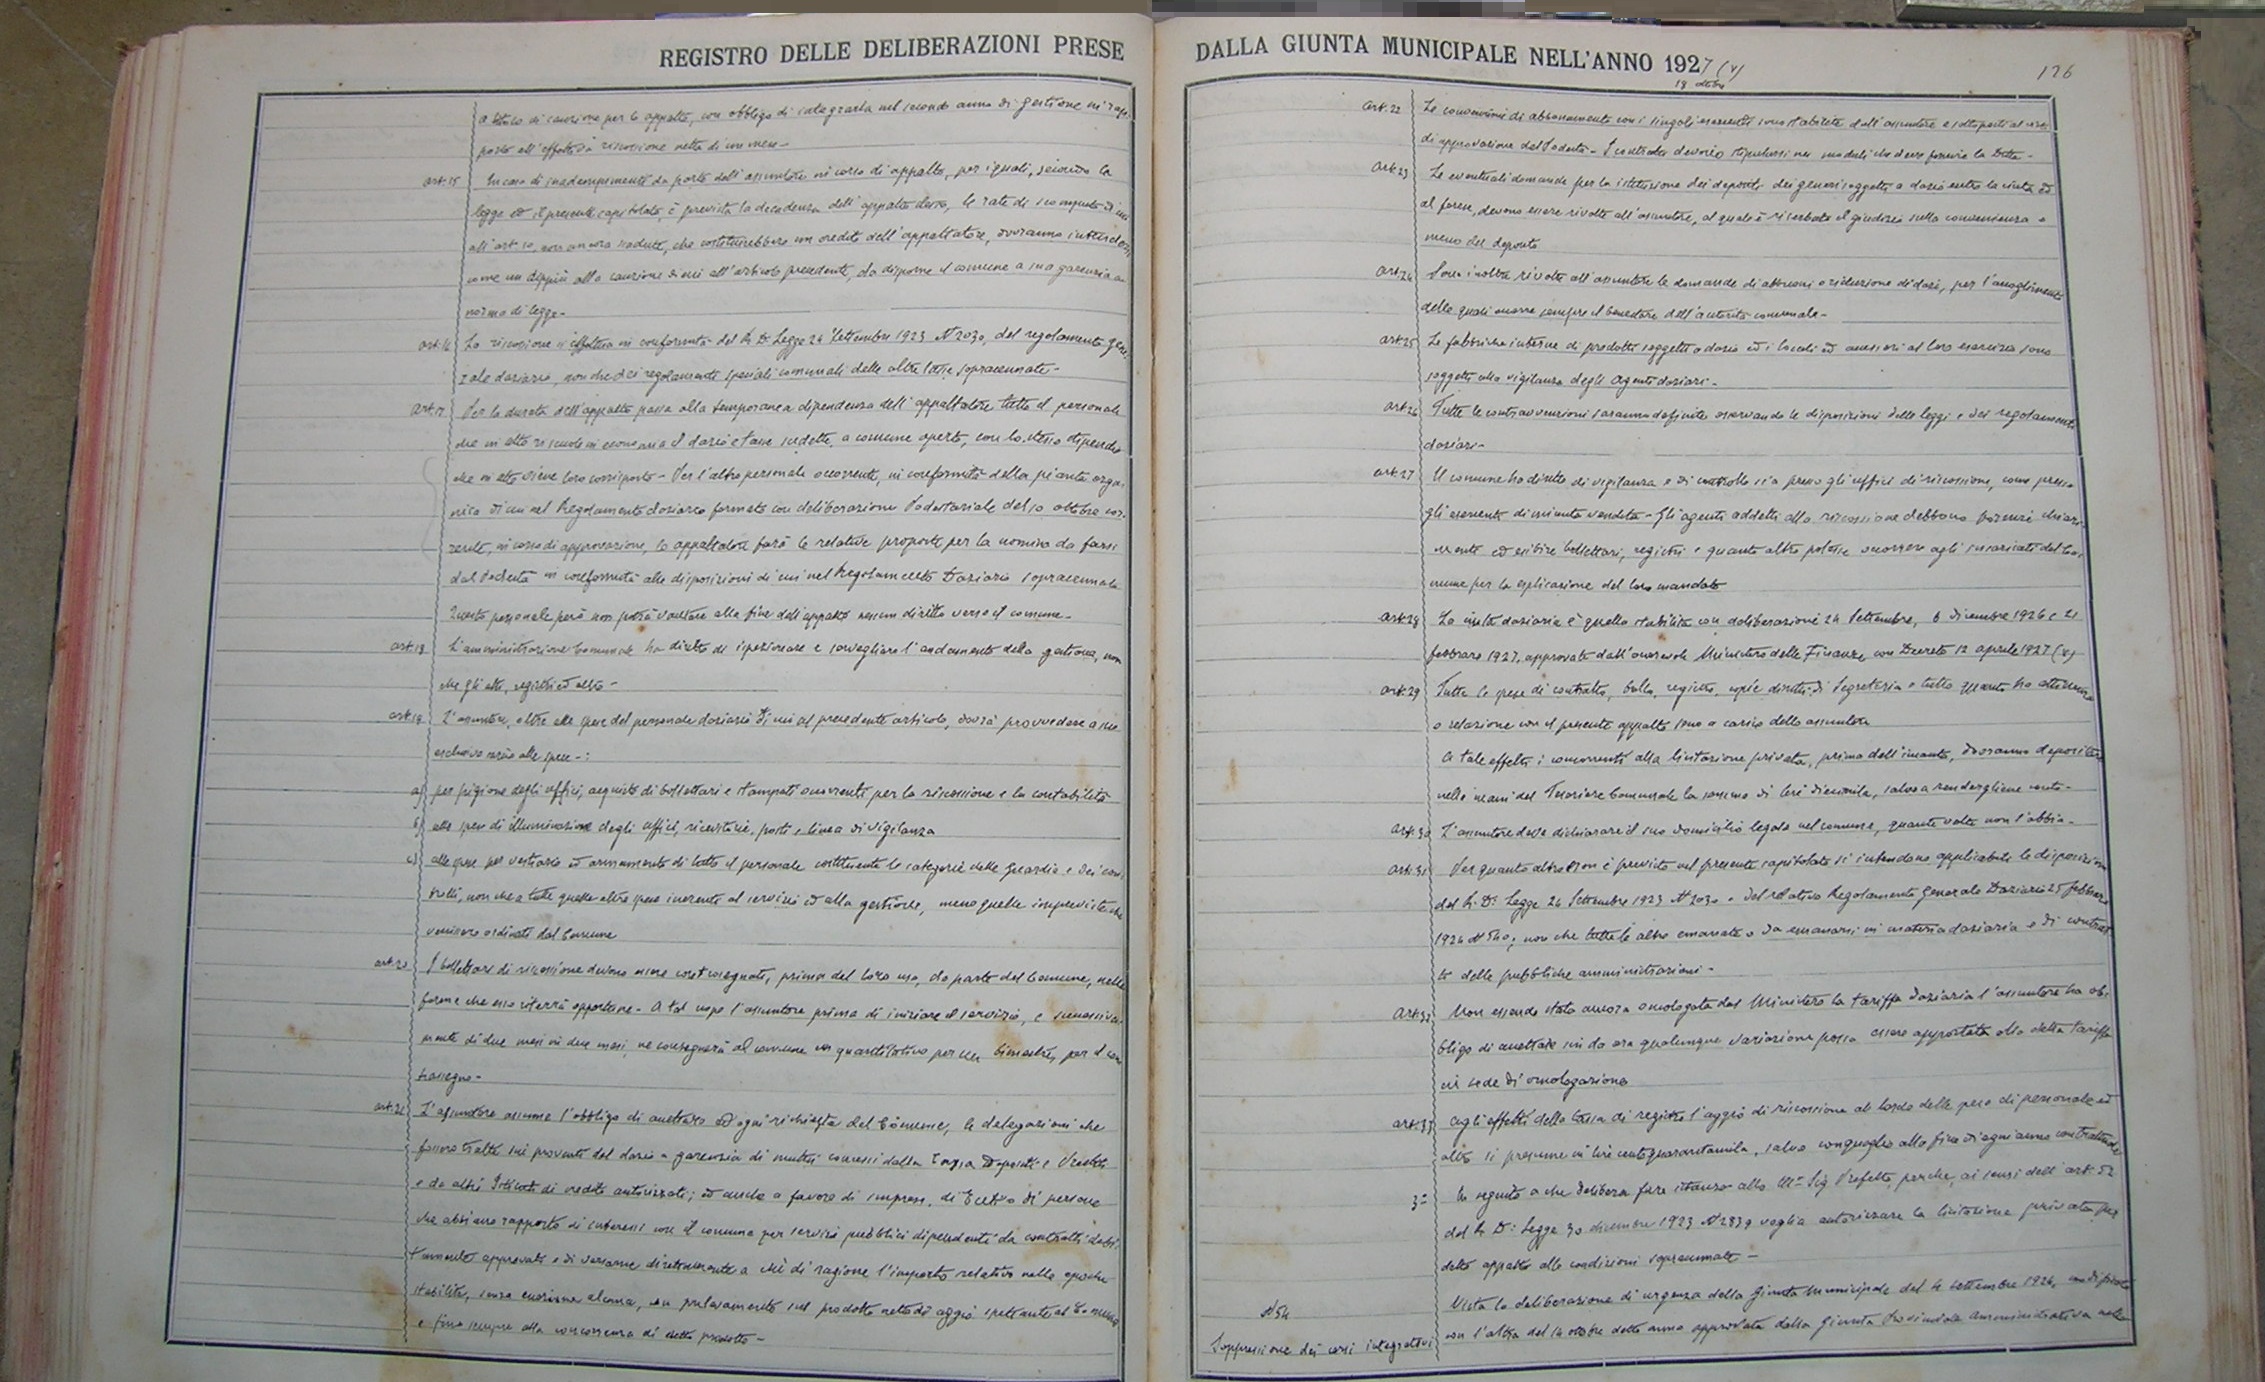 REGISTRO DELLE DELIBERAZIONI PRESE
a titolo di cauzione per lo appalto, con obbligo di integrarla nel secondo anno di gestione in rap-
porto all'effettiva riscossione netta di un mese -
art. 15 In caso di inadempimento da parte dell'assuntore in corso di appalto, per i quali, secondo la
legge ed il presente capitolato, è prevista la decadenza dell'appalto stesso, le rate di scomputo di cui
all'art. 10, non ancora scadute, che costituirebbero un credito dell'appaltatore, dovranno intendersi
come un di più alla cauzione di cui all'articolo precedente, da disporne il comune a sua garenzia a
norma di legge -
art. 16 La riscossione si effettua in conformità del R. D. Legge 24 Settembre 1923 N 2030, del regolamento gene-
rale daziario, non che dei regolamenti speciali comunali delle altre tasse sopracennate -
art. 17 Per la durata dell'appalto passa alla temporanea dipendenza dell'appaltatore tutto il personale
che in atto riscuote in economia il dazio e tasse sudette, a comune aperto, con lo stesso stipendio
che in atto viene loro corrisposto - Per l'altro personale occorrente, in conformità della pianta orga-
nica di cui nel Regolamento daziario formato con deliberazione Podestariale del 10 ottobre cor-
rente, in corso di approvazione, lo appaltatore farà le relative proposte per la nomina da farsi
dal Podestà in conformità alle disposizioni di cui nel Regolamento Daziario sopracennato
Questo personale però non potrà vantare alla fine dell'appalto nessun diritto verso il comune -
art. 18 L'amministrazione Comunale ha diritto di ispezionare e sorvegliare l'andamento della gestione, non
che gli atti, registri ed altro -
art. 19 L'assuntore, oltre alle spese del personale daziario di cui al precedente articolo, dovrà provvedere a sue
esclusivo carico alle spese - :
a) per pigione degli uffici, acquisto di bollettari e stampati occorrenti per la riscossione e la contabilità
b) alle spese di illuminazione degli uffici, ricevitorie, posti e linea di vigilanza
c) alle spese per vestiario ed armamento di tutto il personale costituente le categorie delle Guardie e dei con-
trolli, non che a tutte quelle altre spese inerenti al servizio ed alla gestione, meno quelle impreviste che
venissero ordinati dal Comune
art. 20 I bollettari di riscossione devono essere contrasegnati, prima del loro uso, da parte del Comune, nelle
forme che esso riterrà opportune - A tal uopo l'assuntore prima di iniziare il servizio, e successiva-
mente di due mesi in due mesi, ne consegnerà al comune un quantitativo per un bimestre, per il con
trassegno -
art. 21 L'assuntore assume l'obbligo di accettare ad ogni richiesta del Comune, le delegazioni che
fossero tratte sui proventi del dazio a garenzia di mutui concessi dalla Cassa Depositi e Prestiti
e da altri Istituti di credito autorizzati; ed anche a favore di imprese, di Enti o di persone
che abbiano rapporto di interessi con il comune per servizi pubblici dipendenti da contratti debi-
tamente approvati e di versarne direttamente a chi di ragione l'importo relativo nelle epoche
stabilite, senza eccezione alcuna, con prelevamento sul prodotto netto di aggio spettante al Comune
e fino sempre alla concorrenza di detto prodotto -
DALLA GIUNTA MUNICIPALE NELL'ANNO 1927 (V)
18 ottobre
126
art. 22 Le convenzioni di abbonamento con i singoli esercenti sono stabilite dall'assuntore e sottoposti al visto
di approvazione del Podestà - I contratti devono stipularsi nei moduli che deve fornire la Ditta -
art. 23 Le eventuali domande per la istituzione dei depositi dei generi soggetti a dazio entro la cinta ed
al forese, devono essere rivolte all'assuntore, al quale è riserbato il giudizio sulla convenienza o
meno del deposito
art. 24 Sono inoltre rivolte all'assuntore le domande di abbuoni o riduzione di dazi, per l'accoglimento
delle quali occorre sempre il benestare dell'autorità comunale -
art. 25 Le fabbriche interne di prodotti soggetti a dazio ed i locali ed accessori al loro esercizio sono
soggetti alla vigilanza degli Agenti daziari -
art. 26 Tutte le contravvenzioni saranno definite osservando le disposizioni delle leggi e dei regolamenti
daziari -
art. 27 Il comune ha diritto di vigilanza e di controllo sia presso gli uffici di riscossione, come presso
gli esercenti di minuta vendita - Gli agenti addetti alla riscossione debbono fornire chiari-
menti ed esibire bollettari, registri e quanto altro potesse occorrere agli incaricati del Co-
mune per la esplicazione del loro mandato
art. 28 La cinta daziaria è quella stabilita con deliberazioni 24 Settembre, 6 Dicembre 1926 e 21
febbraro 1927, approvate dall'onorevole Ministero delle Finanze con Decreto 12 aprile 1927 (V)
art. 29 Tutte le spese di contratto, bollo, registro, copie diritti di Segreteria e tutto quanto ha attinenza
o relazione con il presente appalto sono a carico dello assuntore
A tale effetto i concorrenti alla licitazione privata, prima dell'incanto, dovranno depositare
nelle mani del Tesoriere Comunale la somma di lire diecimila, salvo a rendergliene conto -
art. 30 L'assuntore deve dichiarare il suo domicilio legale nel comune, quante volte non l'abbia -
art. 31 Per quanto altro non è previsto nel presente capitolato si intendono applicabili le disposizioni
del R. D. Legge 24 Settembre 1923 N 2030 e del relativo Regolamento Generale Daziario 25 febbraro
1924 N 540; non che tutte le altre emanate o da emanarsi in materia daziaria e di contrat-
ti delle pubbliche amministrazioni -
art. 32 Non essendo stata ancora omologata dal Ministero la tariffa daziaria l'assuntore ha ob-
bligo di accettare sin da ora qualunque variazione possa essere apportata alla detta tariffa
in sede di omologazione
art. 33 Agli effetti della tassa di registro l'aggio di riscossione al lordo delle spese di personale ed
altro si presume in lire centoquarantamila, salvo conguaglio alla fine di ogni anno contrattuale
3° In seguito a che delibera fare istanza allo Ill.mo Sig. Prefetto, perché, ai sensi dell'art. 52
del R. D. Legge 30 dicembre 1923 N 2839 voglia autorizzare la licitazione privata pel
detto appalto alle condizioni sopracennate -
N 54
Soppressione dei corsi integrativi
Vista la deliberazione di urgenza della Giunta Municipale del 4 settembre 1924,
con l'altra del 14 ottobre detto anno approvata dalla Giunta Provinciale Amministrativa nella